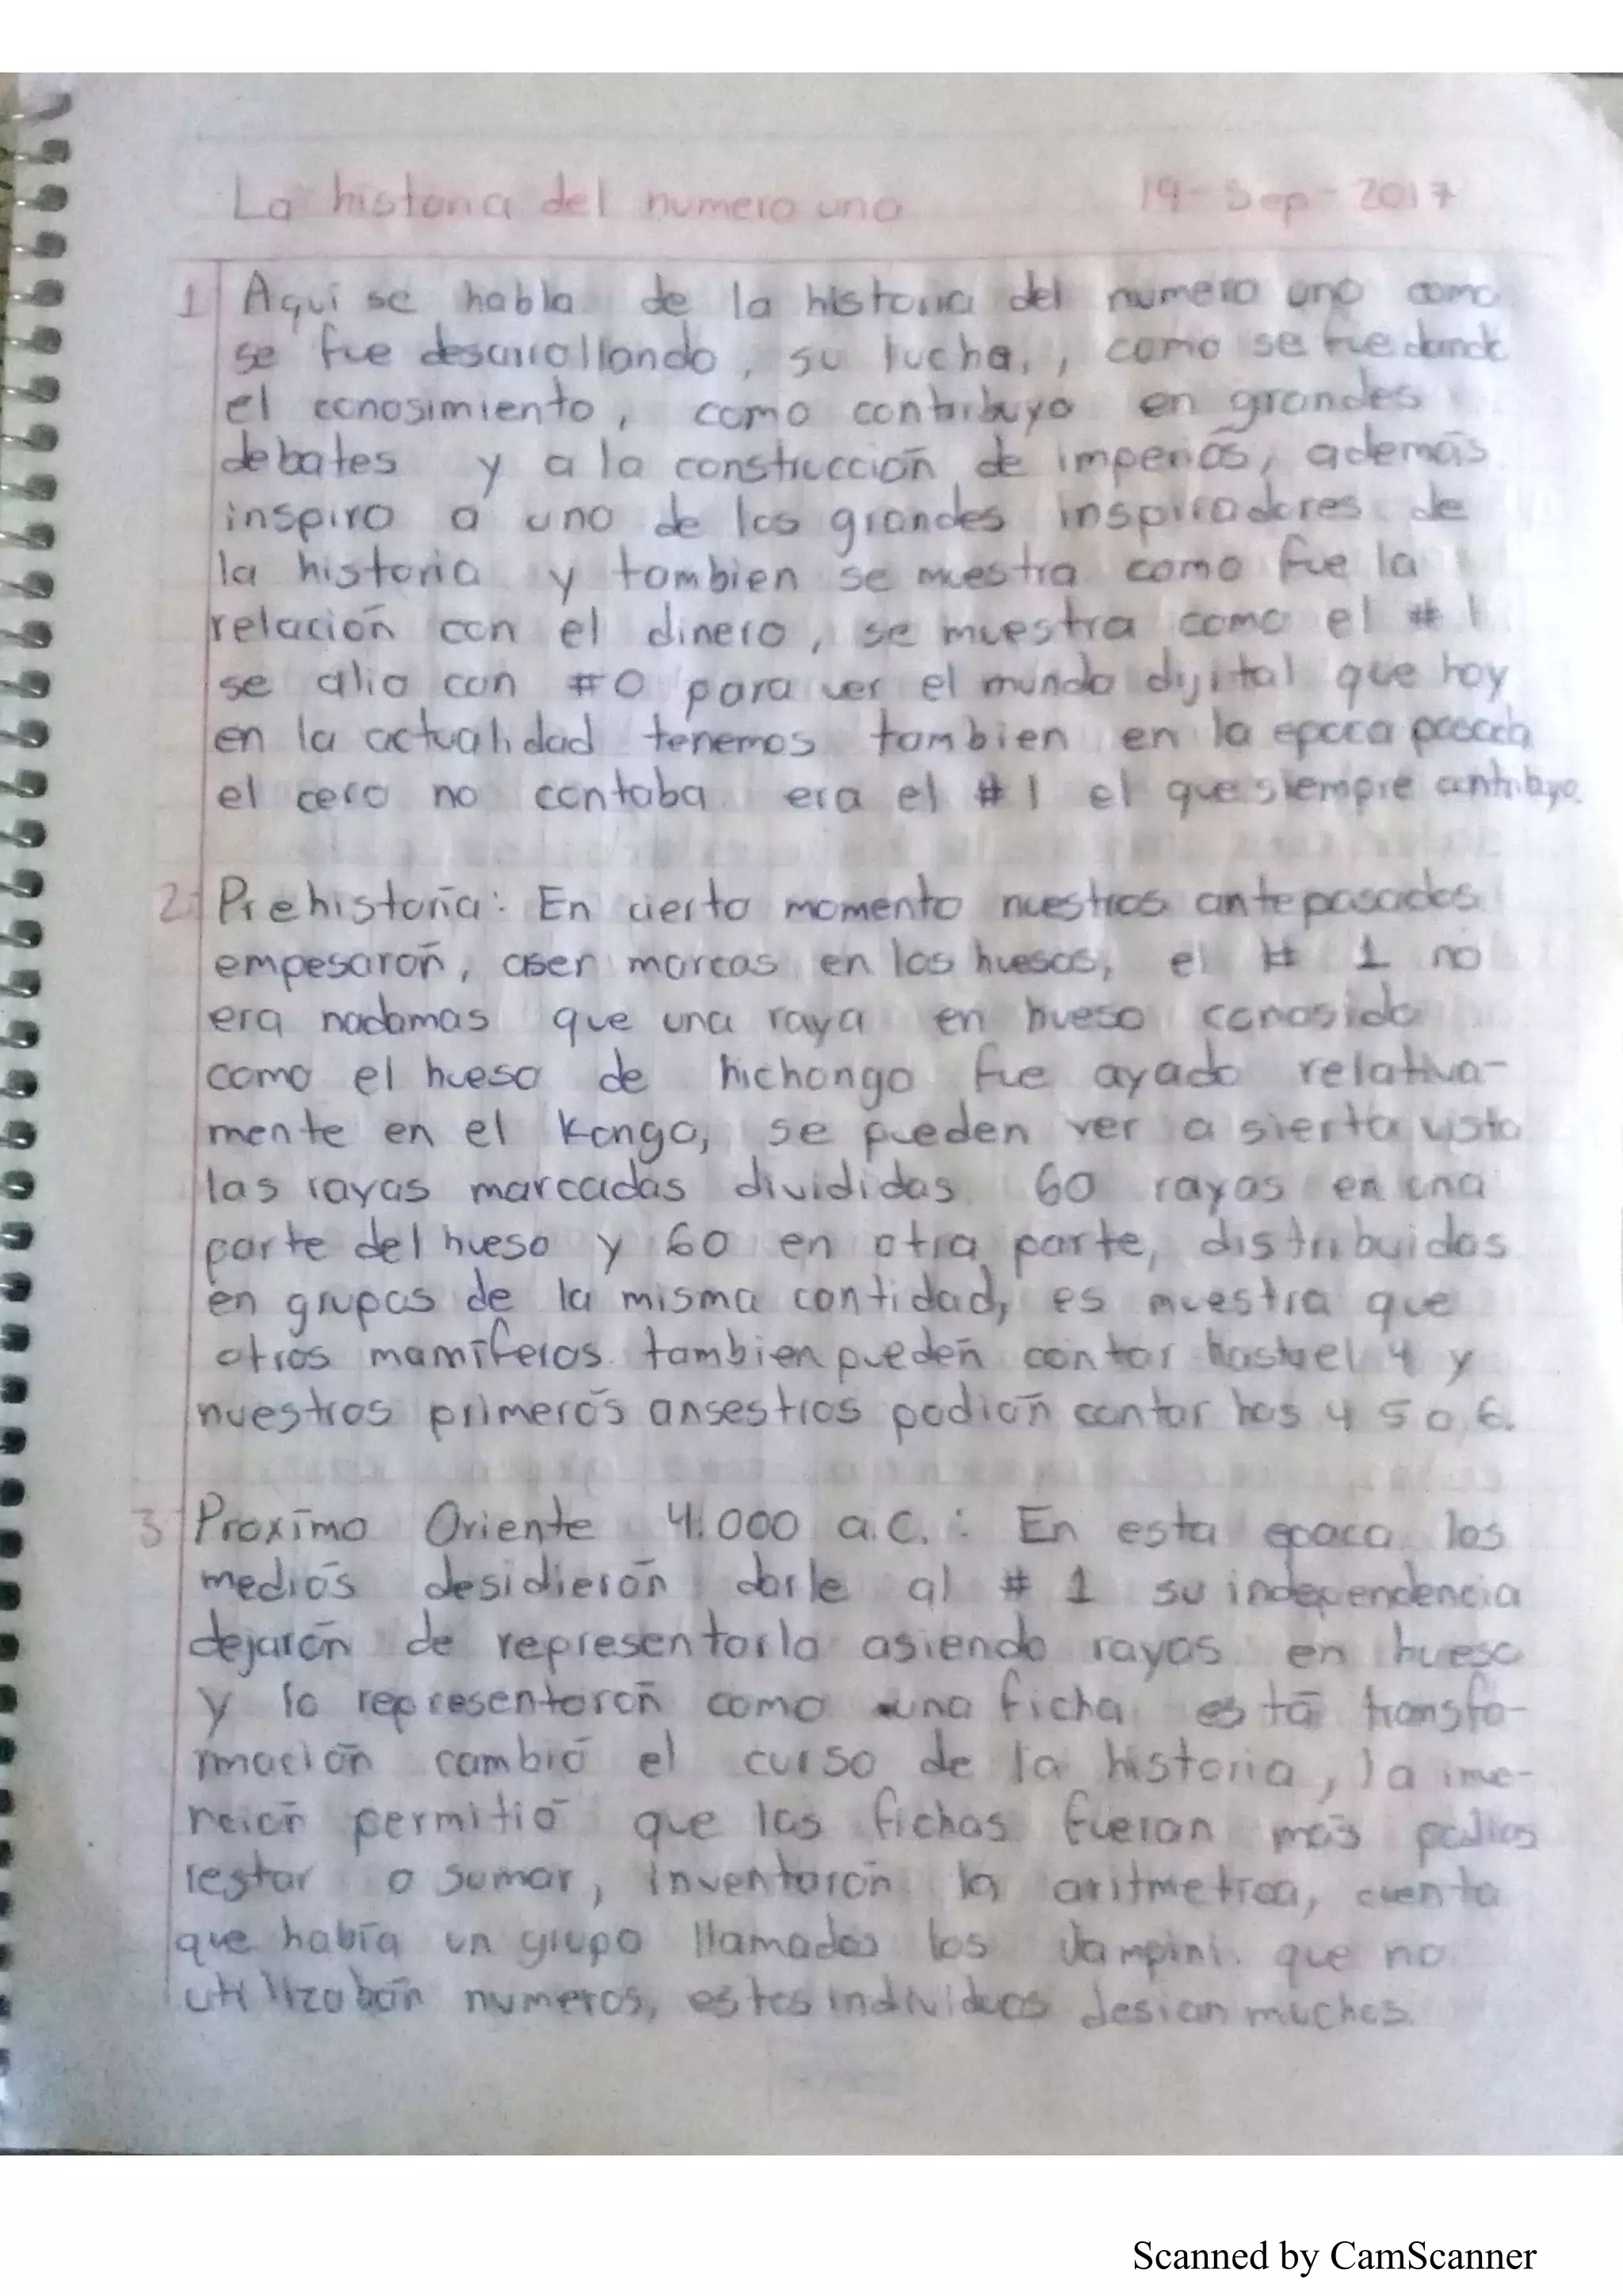 La historia del numero uno 19-Sep-2017
1 Aquí se habla de la historia del numero uno como
se fue desarrollando, su lucha, , como se fue dando
el conosimiento, como contribuyo en grandes
debates y a la construcción de imperiós, además
inspiro a uno de los grandes inspiradores de
la historia y tambien se muestra como fue la
relación con el dinero, se muestra como el #1
se alio con #0 para ver el mundo dijital que hoy
en la actualidad tenemos tambien en la epoca
el cero no contaba era el #1 el que siempre contribuyo.
2 Prehistoria: En cierto momento nuestros antepasados
empesarón, aser marcas en los huesos, el # 1 no
era nadamas que una raya en hueso conosido
como el hueso de hichongo fue ayado relativa-
mente en el Kongo, se pueden ver a sierta vista
las rayas marcadas divididas 60 rayas en una
parte del hueso y 60 en otra parte, distribuidos
en grupos de la misma contidad, es muestra que
otros mamíferos tambien puedén contar el 4 y
nuestros primerós ansestros podián contar has 4 5 o 6.
3 Proxímo Oriente 4:000 a.C.: En esta epoca los
mediós desidierón darle al # 1 su independencia
dejarón de representarlo asiendo rayas en hueso
y lo representarón como una ficha está transfo-
rmación cambió el curso de la historia, la
permitió que las fichas fueran más
restar o sumar, inventarón la aritmetica, cuenta
que había un grupo llamados los que no
utilizabán numeros, estos individuos desian muchos.
Scanned by CamScanner